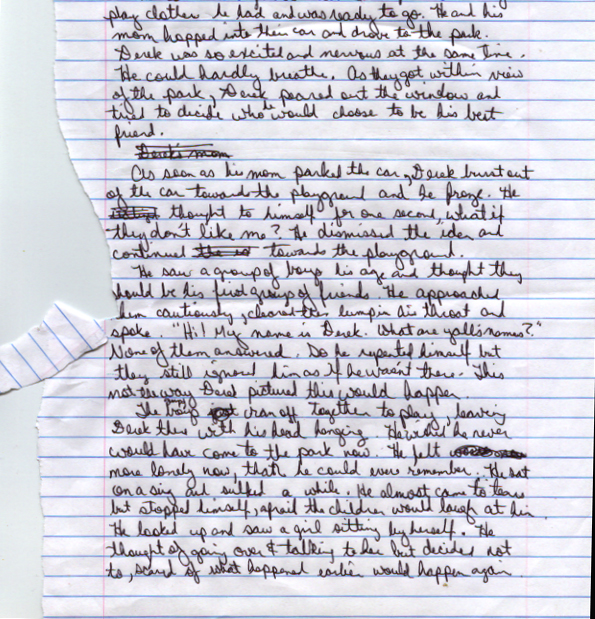 play clothes he had and was ready to go. He and his
mom hopped into their car and drove to the park.
Derek was so excited and nervous at the same time.
He could hardly breathe. As they got within view
of the park, Derek peared out the window and
tried to decide who he would choose to be his best
friend.
Derek's mom
As soon as his mom parked the car, Derek burst out
of the car towards the playground and he froze. He
thought to himself for one second, what if
they don't like me? He dismissed the idea and
continued towards the playground.
He saw a group of boys his age and thought they
could be his first group of friends. He approached
them cautiously, cleared the lump in his throat and
spoke. "Hi! My name is Derek. What are yall's names?"
None of them answered. So he repeated himself but
they still ignored him as if he wasn't there. This
not the way Derek pictured this would happen.
The boys ran off together to play, leaving
Derek there with his head hanging. He wished he never
would have come to the park now. He felt
more lonely now, than he could ever remember. He sat
on a swing and sulked a while. He almost came to tears
but stopped himself, afraid the children would laugh at him.
He looked up and saw a girl sitting by herself. He
thought of going over & talking to her but decided not
to, scared of what happened earlier would happen again.